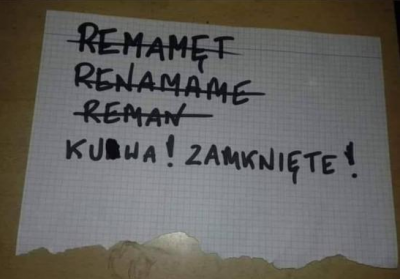 REMAMĘT
RENAMAME
REMAN
KURWA! ZAMKNIĘTE!